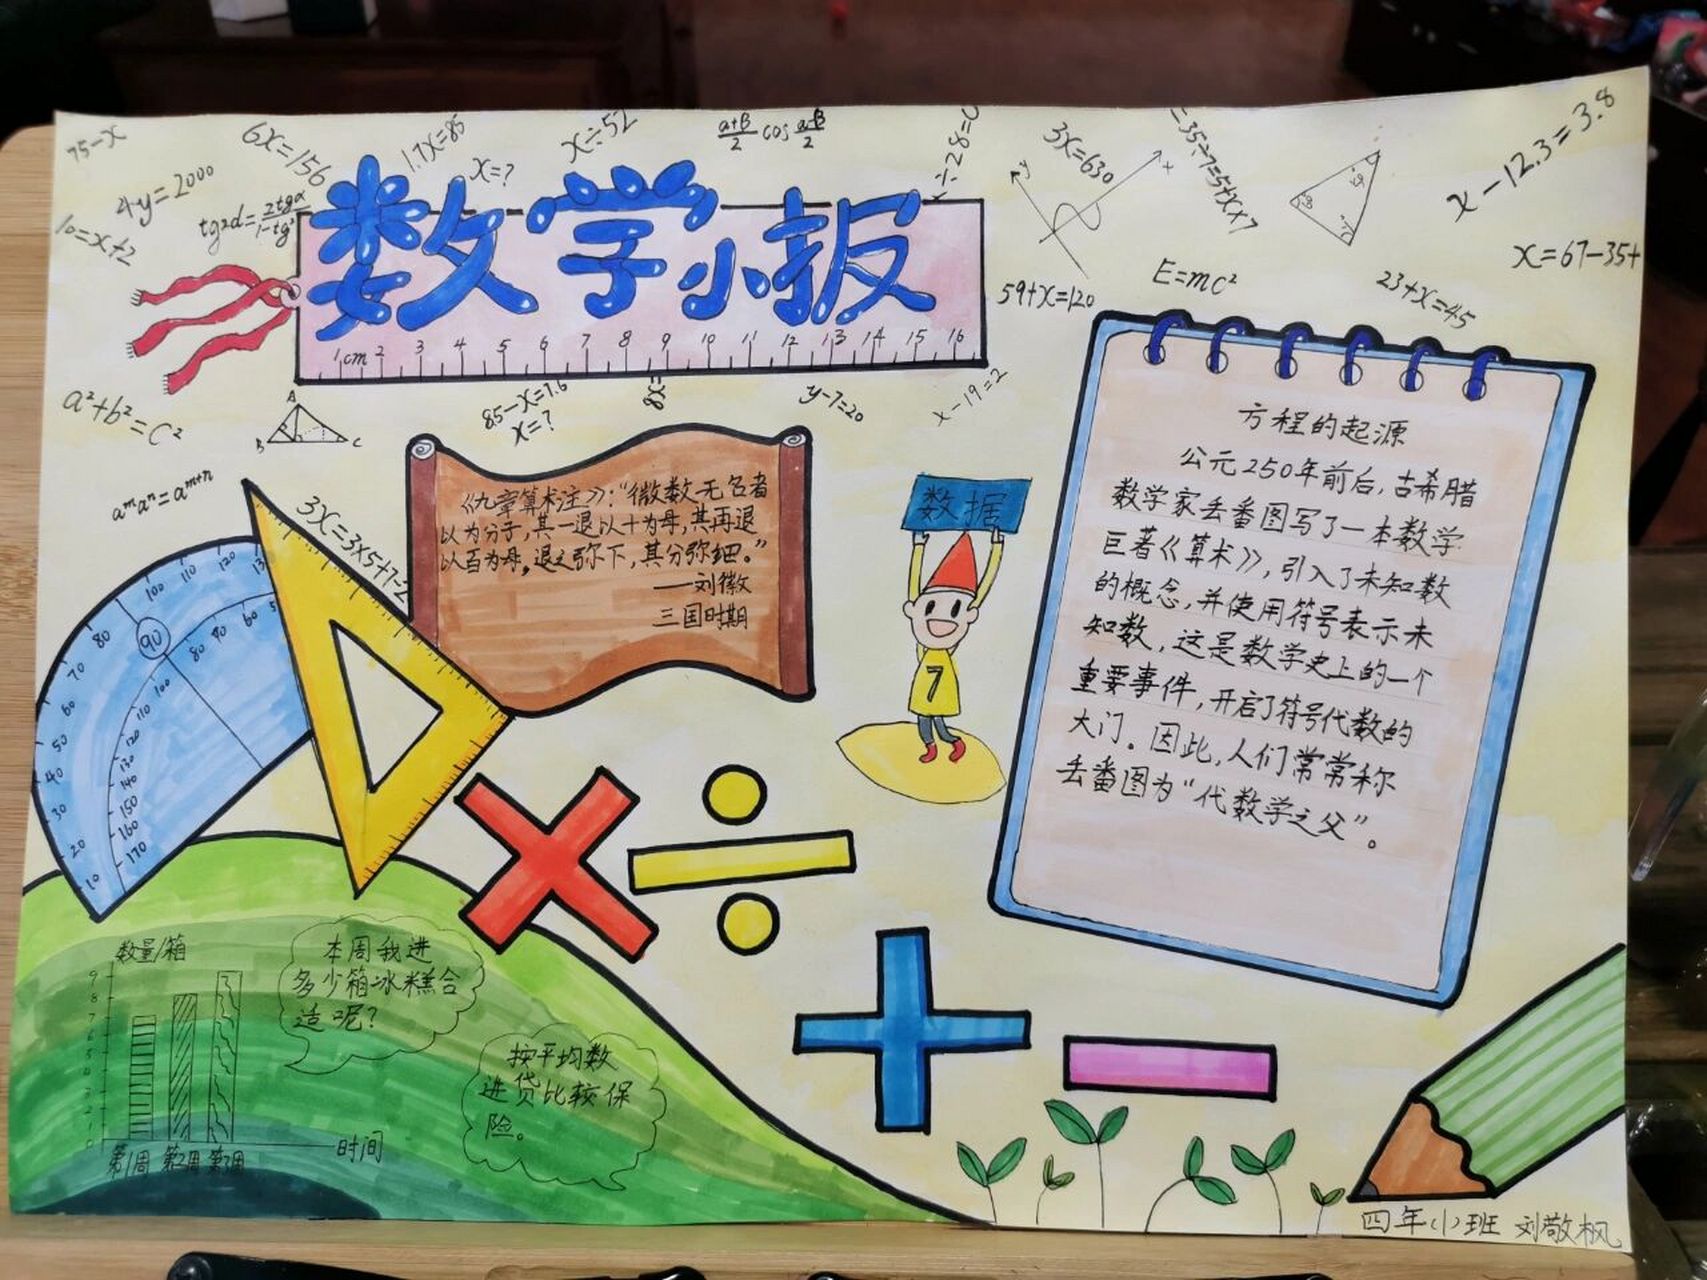 75-x
6x=156
1.7x=85
x=?
x÷52
α+β/2 cos α-β/2
3x=630
y
x
=35÷7=5+x×7
x-12.3=3.8
4y=2000
10=x+2
数学小报
x=67-35+
E=mc²
59+x=120
23+x=45
1cm 2 3 4 5 6 7 8 9 10 11 12 13 14 15 16
a²+b²=c²
A
B C
85-x=7.6
x=?
8x=
y-7=20
x-19=2
aᵐaⁿ=aᵐ⁺ⁿ
3x=3×5+7-2
《九章算术注》:“微数无名者
以为分子,其一退以十为母,其再退
以百为母,退之弥下,其分弥细。”
—刘徽
三国时期
数据
7
方程的起源
公元250年前后,古希腊
数学家丢番图写了一本数学
巨著《算术》,引入了未知数
的概念,并使用符号表示未
知数,这是数学史上的一个
重要事件,开启了符号代数的
大门。因此,人们常常称
丢番图为“代数学之父”。
10 20 30 40 50 60 70 80 90 100 110 120
60 70 80 100 110 120 130 140 150 160 170
数量/箱
9
8
7
6
5
4
3
2
1
0
第1周 第2周 第3周
时间
本周我进
多少箱冰糕合
适呢?
按平均数
进货比较保
险。
四年(1)班 刘敬枫